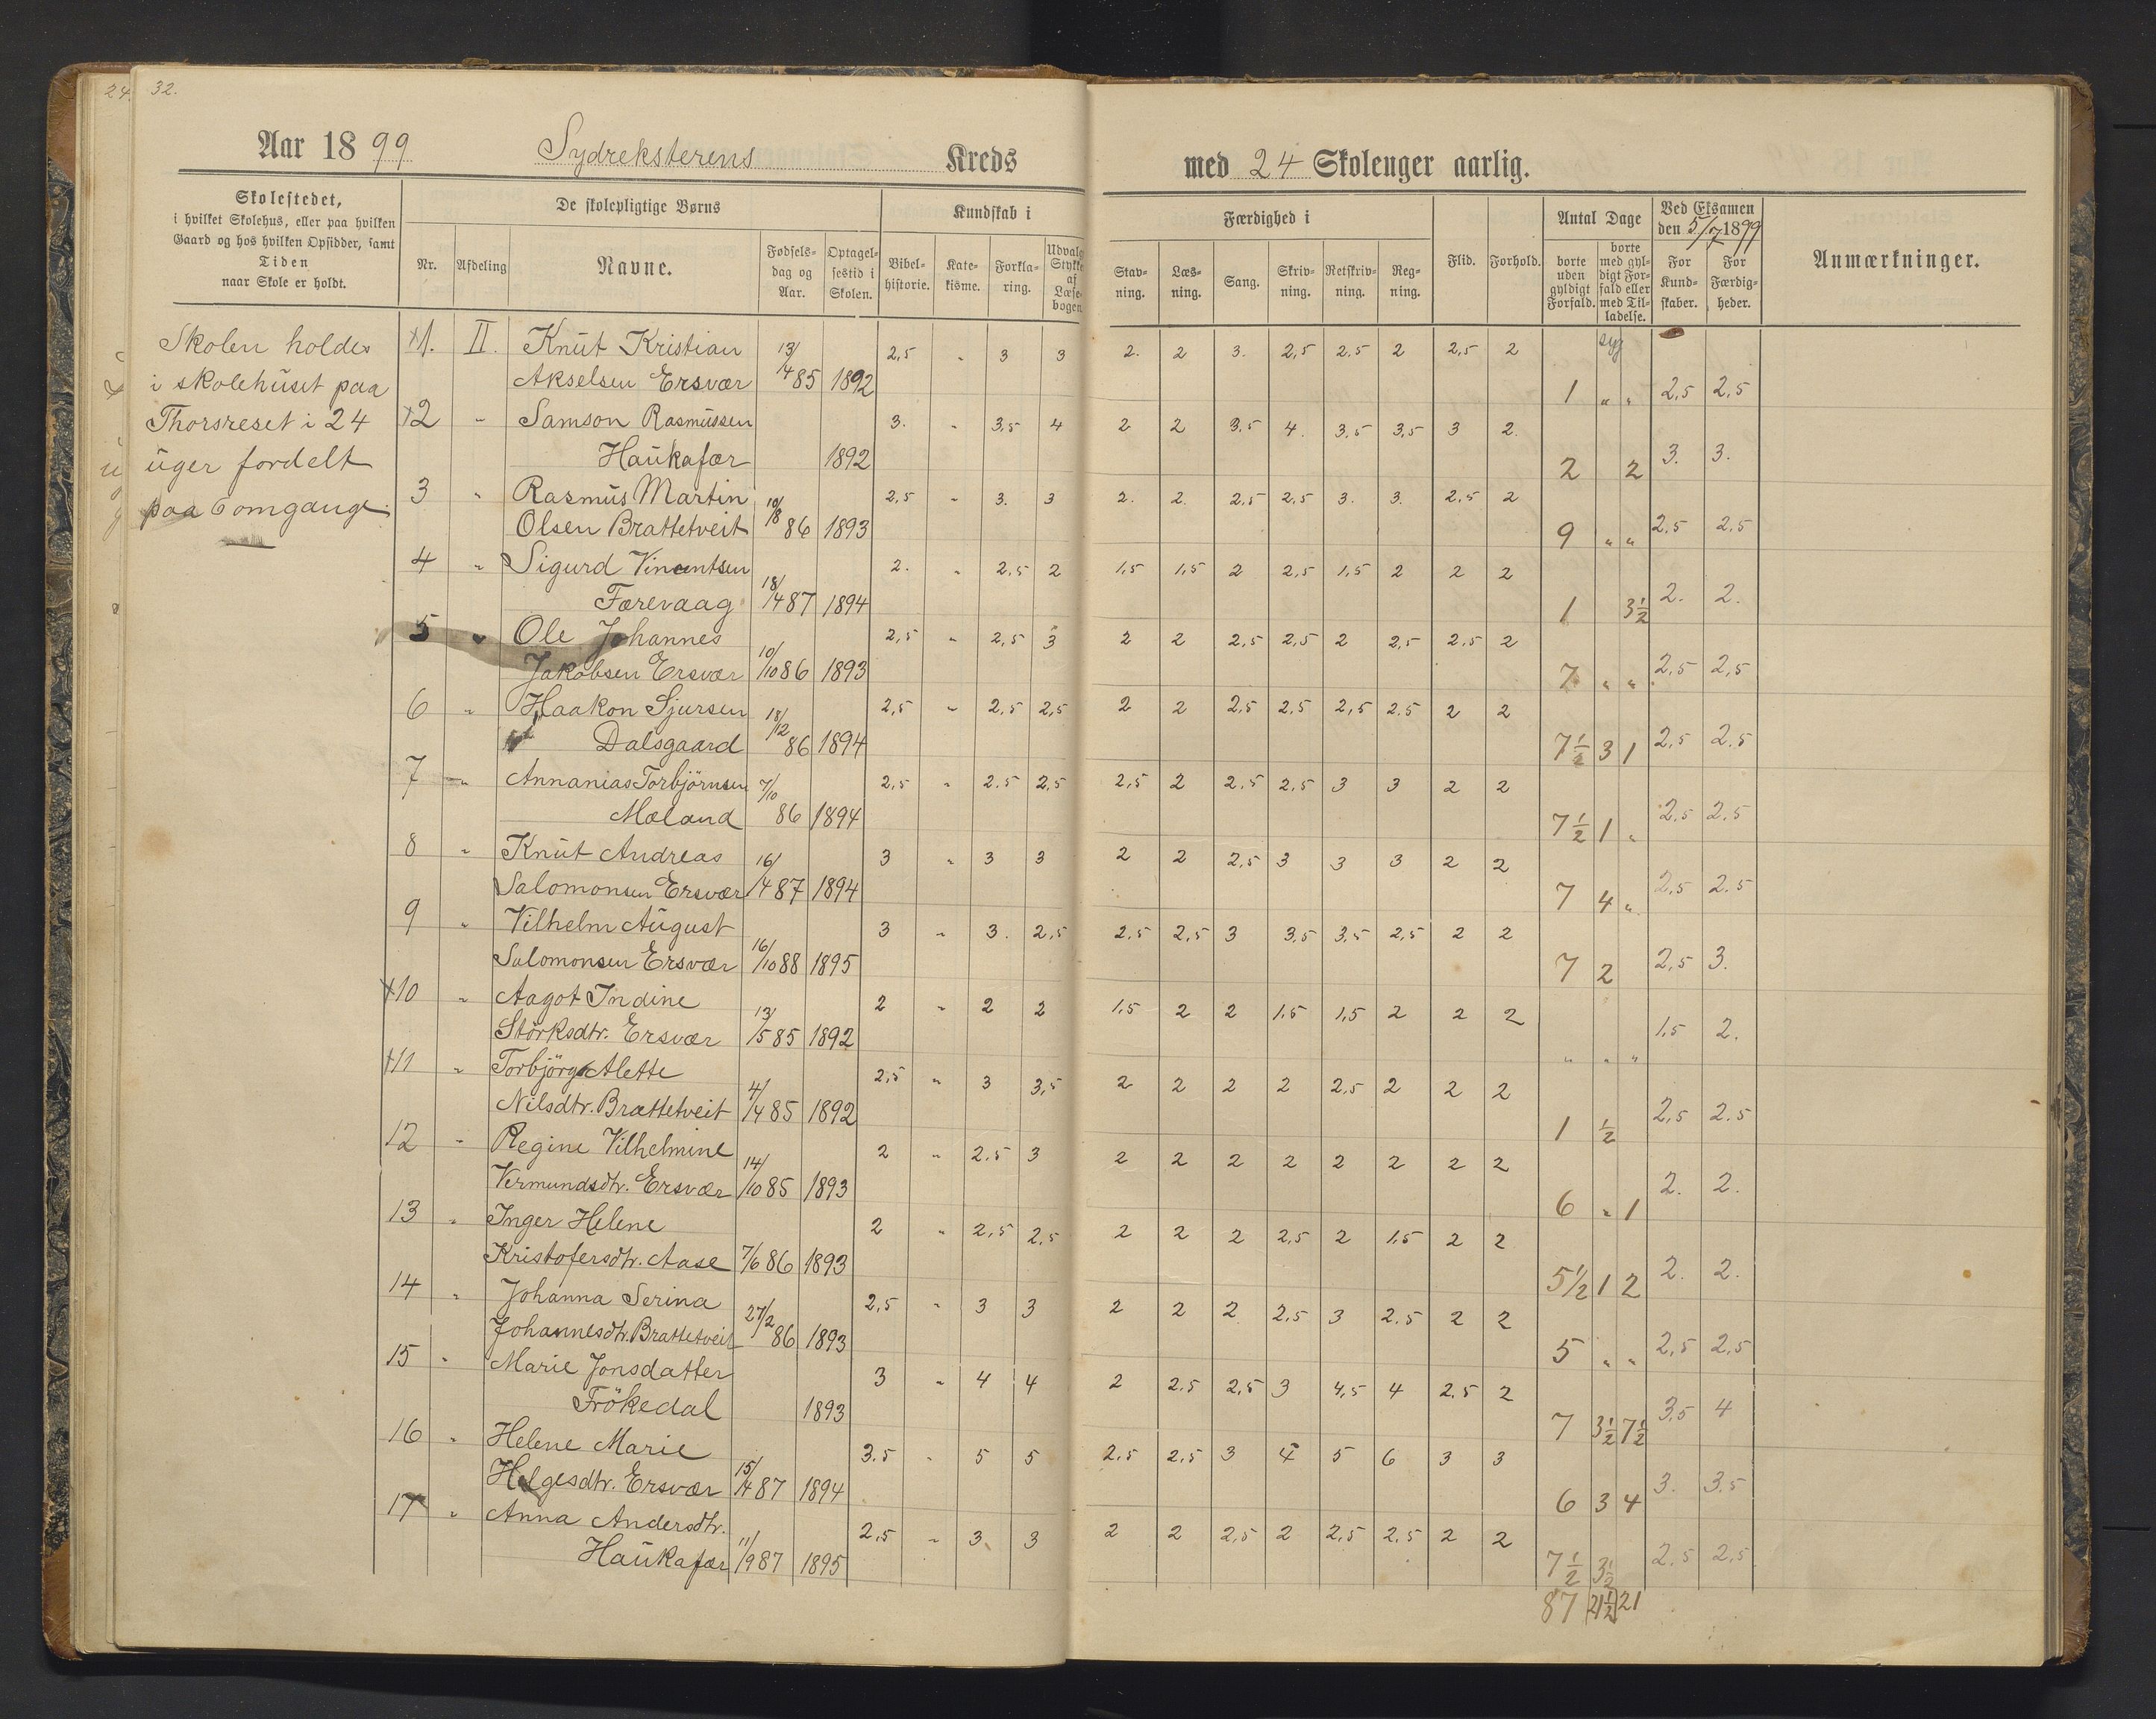 24. 32.
Aar 1899 Sydreksterens Kreds med 24 Skolenger aarlig.
Skolestedet,
i hvilket Skolehus, eller paa hvilken
Gaard og hos hvilken Opsidder, samt
Tiden
naar Skole er holdt.
De skolepligtige Børns
Nr. Afdeling Navne. Fødsels-dag og Aar. Optagel-sestid i Skolen.
Kundskab i
Bibel-historie. Kate-kisme. Forkla-ring. Udvalg Stykke af Læse-bogen
Færdighed i
Stav-ning. Læs-ning. Sang. Skriv-ning. Retskriv-ning. Reg-ning.
Flid. Forhold.
Antal Dage
borte uden gyldigt Forfald. borte med gyl-digt For-fald eller med Til-ladelse.
Ved Eksamen
den 5/7 1899
For Kund-skaber. For Færdig-heder.
Anmærkninger.
Skolen holdes
i skolehuset paa
Thorsreset i 24
uger fordelt
paa 6 omgange.
syg
+1. II. Knut Kristian 13/ 2,5 " 3 3 2. 2 3. 2,5 2.5 2 2,5 2
Akselsen Ersvær /4 85 1892 1 " " 2,5 2,5
+2 " Samson Rasmussen 3. " 3,5 4 2 2 3.5 4. 3,5 3,5 3 2.
Haukafær 1892 2 2 3. 3.
3 " Rasmus Martin 10/ 2,5 " 3. 3 2. 2. 2,5 2,5 3. 3. 2,5 2
Olsen Brattetveit /8 86 1893 9 " " 2.5 2.5
4 " Sigurd Vincentsen 2. " 2,5 2 1,5 1,5 2 2,5 1,5 2 2 2
Færevaag 18/4 87 1894 1 3½ 2. 2.
5 " Ole Johannes 2,5 " 2,5 3 2 2 2,5 2,5 2 2,5 2,5 2
Jakobsen Ersvær 10/10 86 1893 7 " " 2,5 2,5
6 " Haakon Sjursen 2,5 " 2,5 2,5 2 2 2,5 2,5 2,5 2.5 2 2
Dalsgaard 18/12 86 1894 7½ 3 1 2,5 2.5
7 " Annanias Torbjörnsen 7/10 2,5 " 2.5 2,5 2,5 2 2,5 2,5 3 3 2 2
Mæland 86 1894 7½ 1 " 2.5 2.5
8 " Knut Andreas 3 " 3 3 2 2 2,5 3 3 3 2 2
Salomonsen Ersvær 16/4 87 1894 7 4 " 2,5 2.5
9 " Vilhelm August 3 " 3. 2,5 2,5 2,5 3 3,5 3,5 2,5 2 2
Salomonsen Ersvær 16/10 88 1895 7 2 2,5 3.
+10 " Aagot Indine 2 " 2 2 1,5 2 2 1,5 1,5 2 2 2
Störksdtr. Ersvær 13/5 85 1892 " " " 1,5 2.
+11 " Torbjörg Alette 2,5 " 3 3,5 2 2 2 2 2,5 2 2 2
Nilsdtr. Brattetveit 4/4 85 1892 1 ½ 2,5 2.5
12 " Regine Vilhelmine 2 " 2.5 3 2 2 2 2 2 2 2 2
Vermundsdtr. Ersvær 14/10 85 1893 6 " 1 2. 2.
13 " Inger Helene 2 " 2,5 2,5 2 2 2 2,5 2 1,5 2 2
Kristofersdtr. Aase 7/6 86 1893 5½ 1 2 2. 2.
14 " Johanna Serina 2,5 " 3 3 2 2 2 2,5 3 2.5 2 2
Johannesdtr. Brattetveit 27/2 86 1893 5 " " 2,5 2,5
15 " Marie Jonsdatter 3 " 4 4 2 2.5 2,5 3 4,5 4 2,5 2
Frökedal 1893 7 3½ 7½ 3,5 4
16 " Helene Marie 3.5 " 5 5 2,5 2,5 3 4 5 6 3 3
Helgesdtr. Ersvær 15/4 87 1894 6 3 4 3. 3.5
17 " Anna Andersdtr. 2,5 " 3 3 2 2 2,5 2 2,5 2,5 2 2
Haukafær 11/9 87 1895 7½ 3½ 2.5 2,5
87 21½ 21